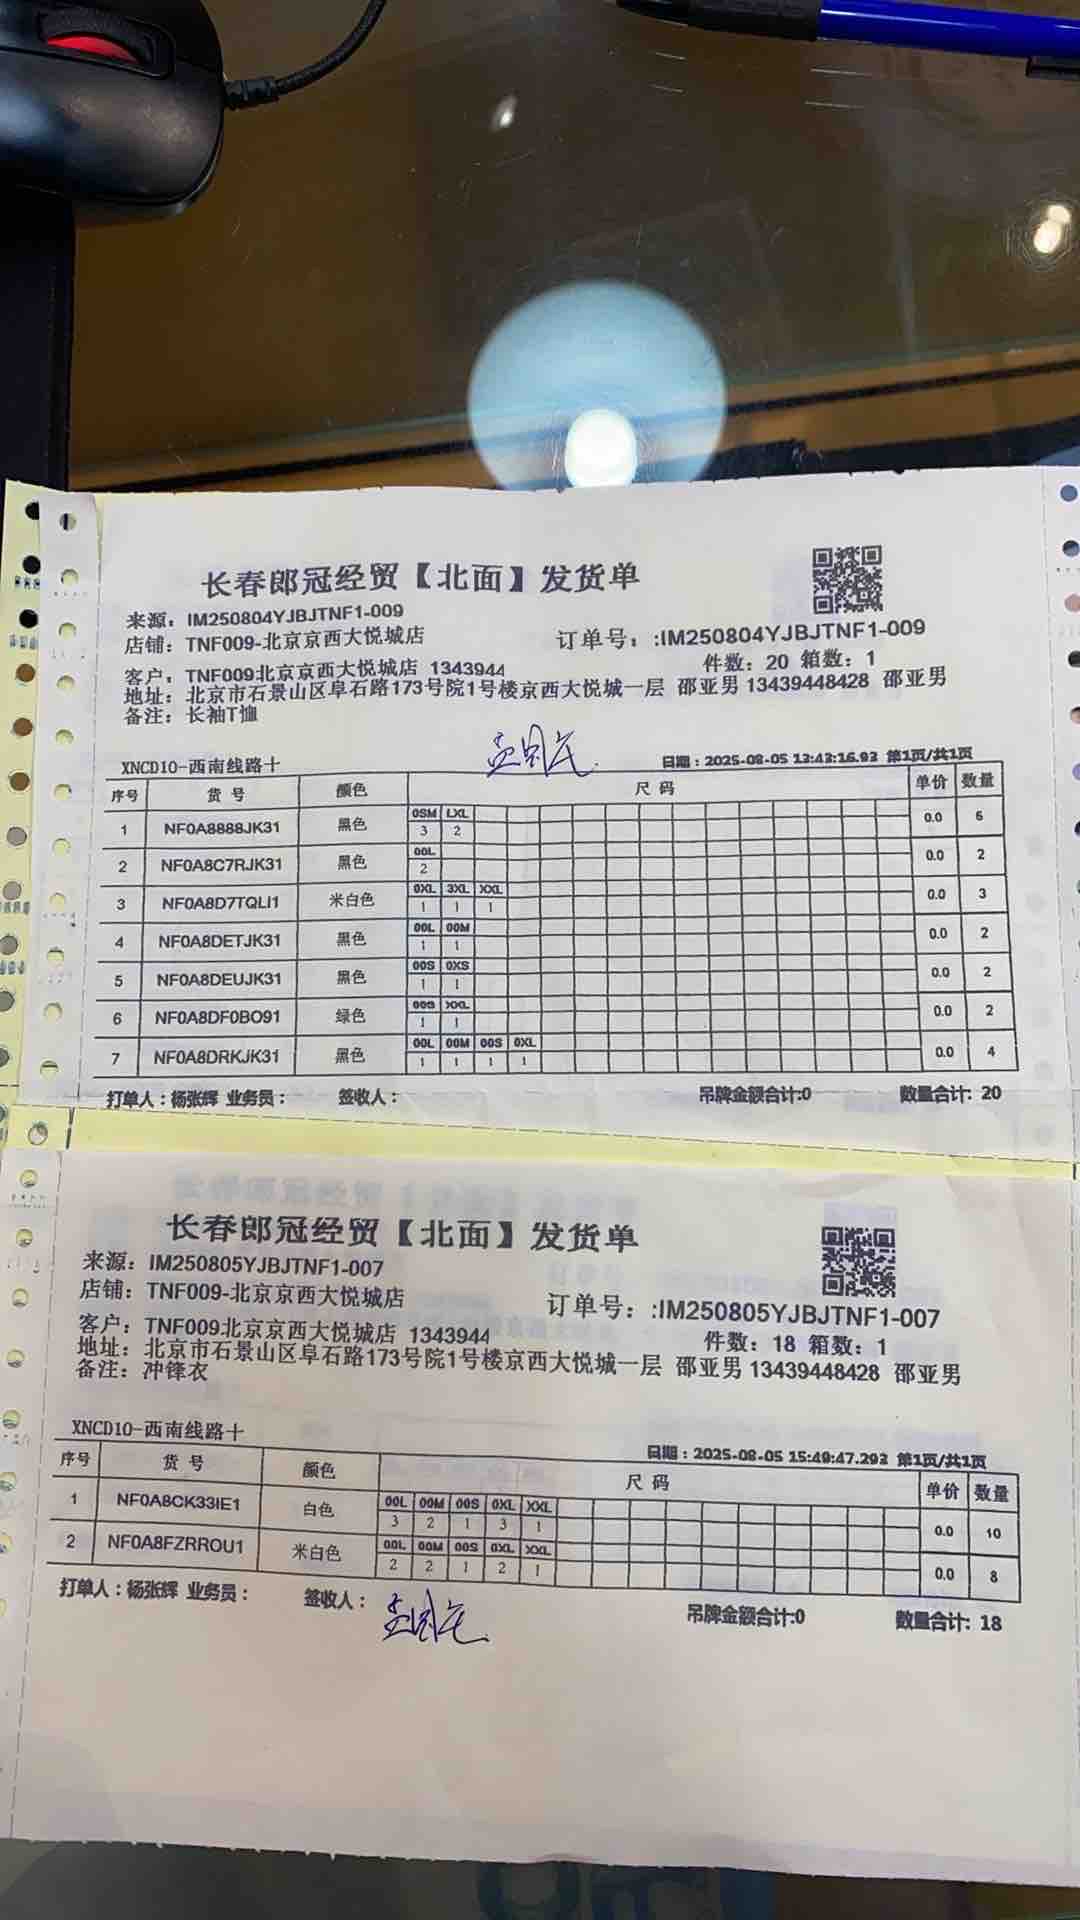 长春郎冠经贸【北面】发货单
来源：IM250804YJBJTNF1-009
店铺：TNF009-北京京西大悦城店 订单号：:IM250804YJBJTNF1-009
件数：20 箱数：1
客户：TNF009北京京西大悦城店 1343944
地址：北京市石景山区阜石路173号院1号楼京西大悦城一层 邵亚男 13439448428 邵亚男
备注：长袖T恤
XNCD10-西南线路十 日期：2025-08-05 13:43:16.93 第1页/共1页
序号 货号 颜色 尺码 单价 数量
0SM LXL
1 NF0A8888JK31 黑色 3 2 0.0 6
00L
2 NF0A8C7RJK31 黑色 2 0.0 2
0XL 3XL XXL
3 NF0A8D7TQLI1 米白色 1 1 1 0.0 3
00L 00M
4 NF0A8DETJK31 黑色 1 1 0.0 2
00S 0XS
5 NF0A8DEUJK31 黑色 1 1 0.0 2
00S XXL
6 NF0A8DF0BO91 绿色 1 1 0.0 2
00L 00M 00S 0XL
7 NF0A8DRKJK31 黑色 1 1 1 1 0.0 4
打单人：杨张辉 业务员： 签收人： 吊牌金额合计:0 数量合计: 20
长春郎冠经贸【北面】发货单
来源：IM250805YJBJTNF1-007
店铺：TNF009-北京京西大悦城店 订单号：:IM250805YJBJTNF1-007
客户：TNF009北京京西大悦城店 1343944 件数：18 箱数：1
地址：北京市石景山区阜石路173号院1号楼京西大悦城一层 邵亚男 13439448428 邵亚男
备注：冲锋衣
XNCD10-西南线路十 日期：2025-08-05 15:49:47.293 第1页/共1页
序号 货号 颜色 尺码 单价 数量
00L 00M 00S 0XL XXL
1 NF0A8CK33IE1 白色 3 2 1 3 1 0.0 10
00L 00M 00S 0XL XXL
2 NF0A8FZRROU1 米白色 2 2 1 2 1 0.0 8
打单人：杨张辉 业务员： 签收人： 吊牌金额合计:0 数量合计: 18